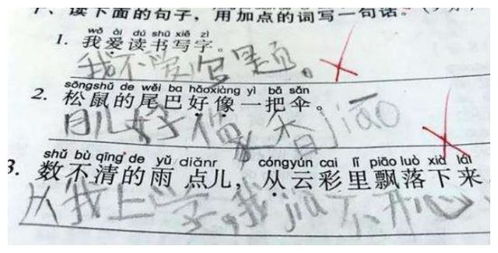 读下面的句子，用加点的词写一句话。
wǒ ài dú shū xiě zì
1. 我爱读书写字。
我不爱写作业。
sōngshǔ de wěi ba hǎoxiàng yì bǎ sǎn
2. 松鼠的尾巴好像一把伞。
月儿好像香jiāo
shǔ bù qīng de yǔ diǎnr cóngyún cai lǐ piāo luò xià lái
3. 数不清的雨点儿，从云彩里飘落下来
从我上学，我jiù不开心